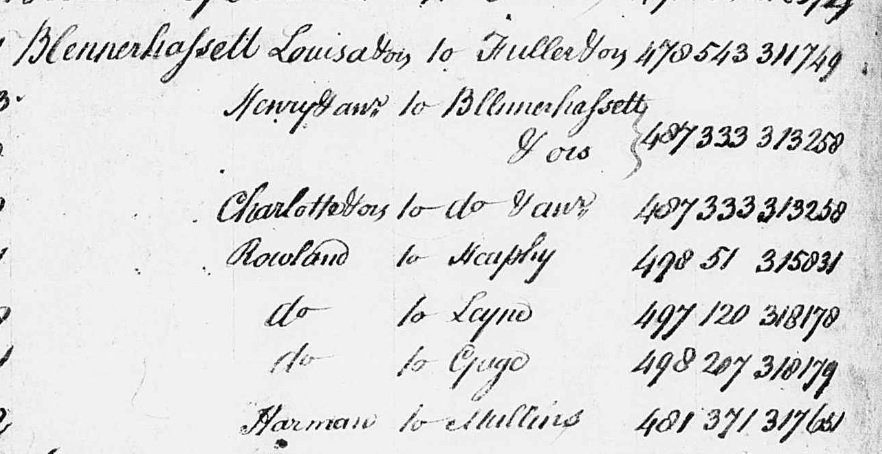 Blennerhassett Louisa & ors to Fuller & ors 478 543 311749
Henry & anr to Blennerhassett
& ors } 487 333 313258
Charlotte & ors to do & anr 487 333 313258
Rowland to 498 51 315831
do to Leyne 497 120 318178
do to Gage 498 207 318179
Harman to Mullins 481 371 317651